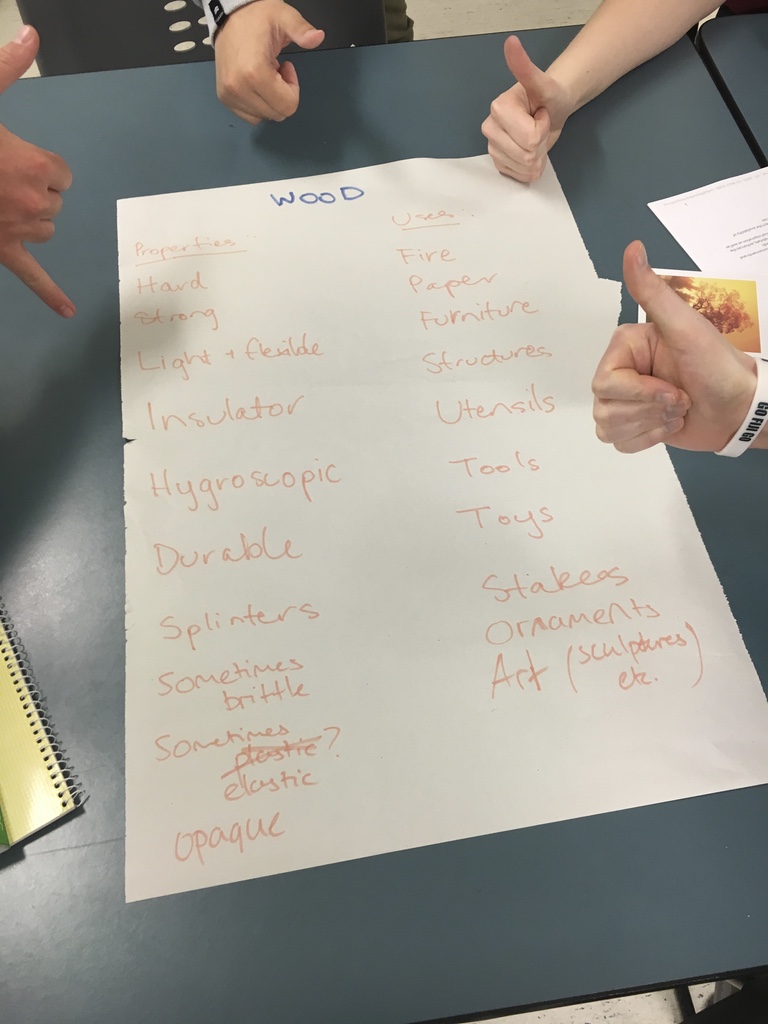 WOOD
Properties:
Hard
Strong
Light + flexible
Insulator
Hygroscopic
Durable
Splinters
Sometimes
brittle
Sometimes
plastic?
elastic
opaque
Uses:
Fire
Paper
Furniture
Structures
Utensils
Tools
Toys
Stakes
Ornaments
Art (sculptures
etc.)